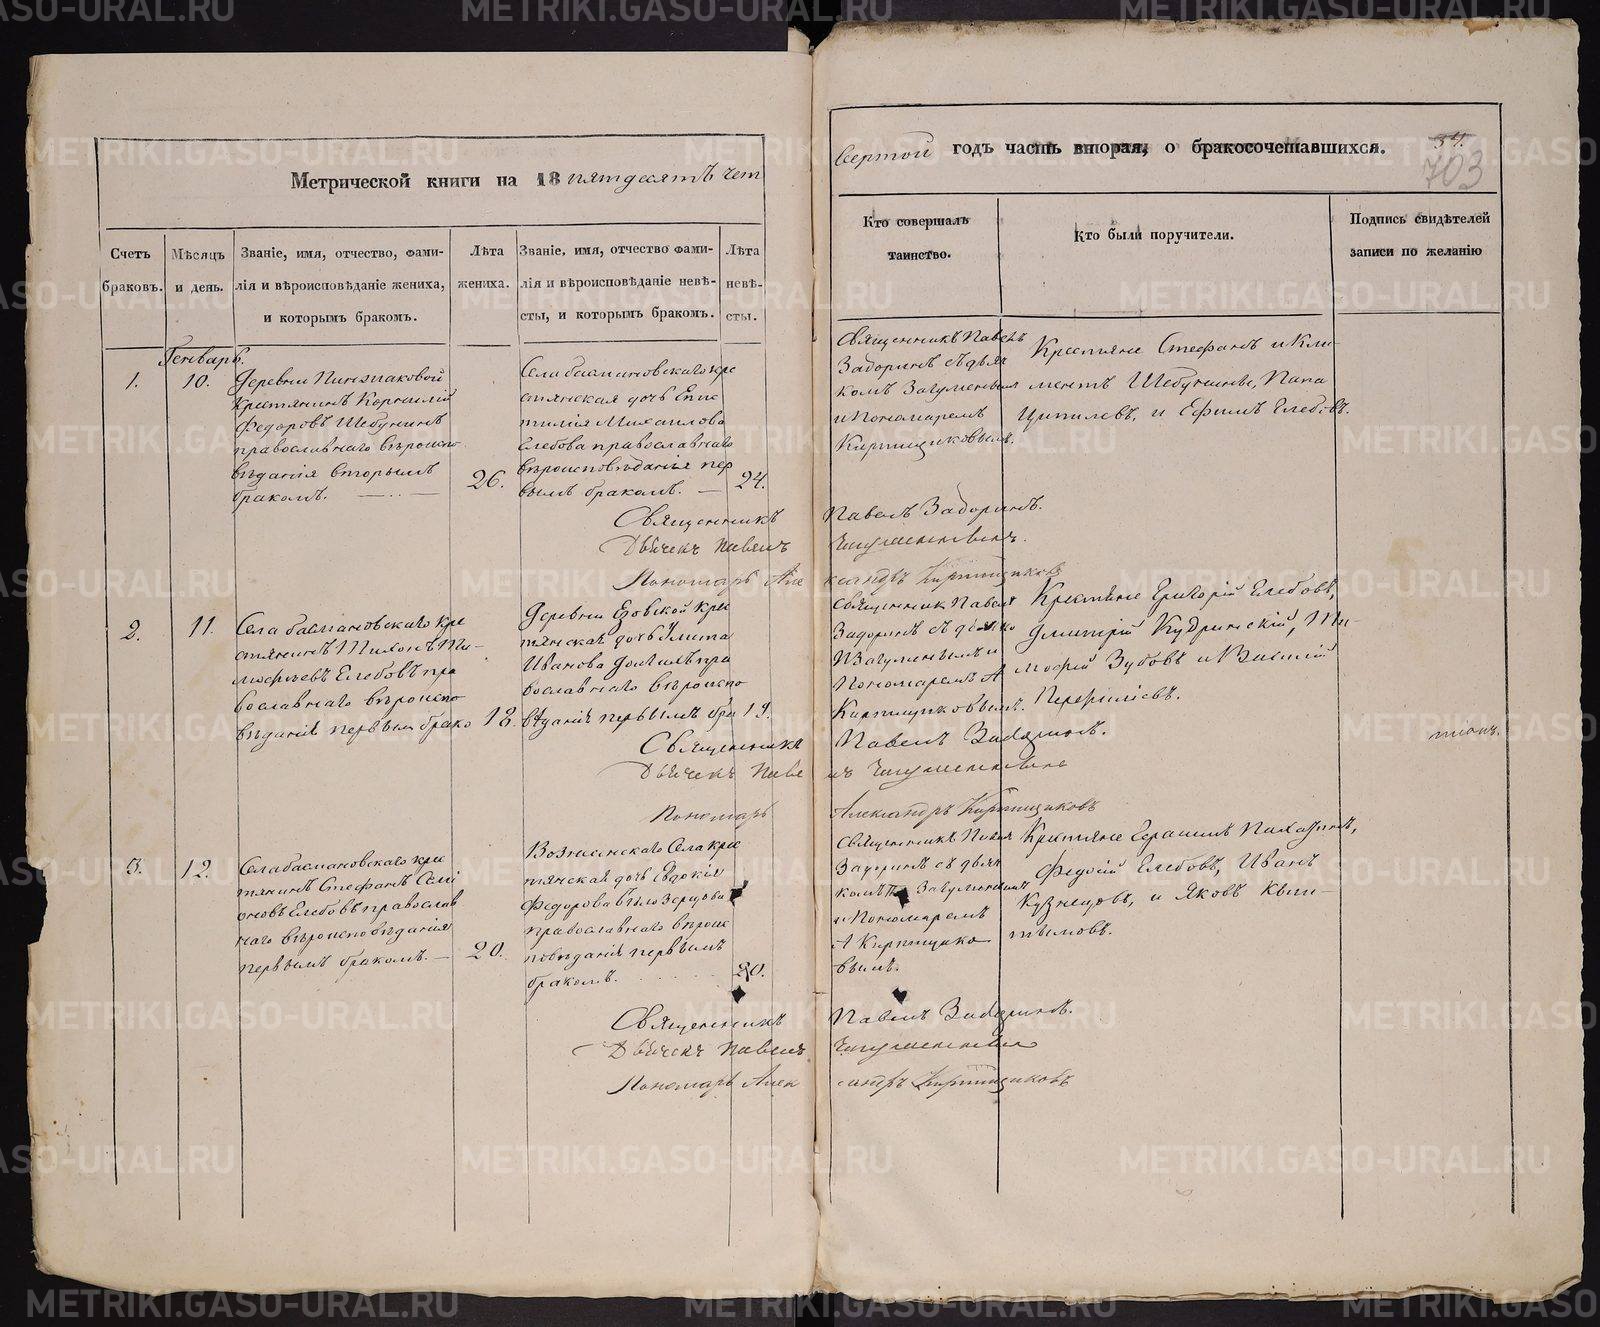 Метрической книги на 18 пятдесятъ чет
вертой годъ часть вторая, о бракосочетавшихся.
34.
703
Счетъ
браковъ.
Мѣсяцъ
и день.
Званіе, имя, отчество, фами-
лія и вѣроисповѣданіе жениха,
и которымъ бракомъ.
Лѣта
жениха.
Званіе, имя, отчество фами-
лія и вѣроисповѣданіе невѣ-
сты, и которымъ бракомъ.
Лѣта
невѣ-
сты.
Кто совершалъ
таинство.
Кто были поручители.
Подпись свидѣтелей
записи по желанію
Генварь.
1.
10.
Деревни
крестьянинъ Корнилій
Федоровъ Шебунинъ
православнаго вѣроиспо
вѣданія вторымъ
бракомъ.
26.
Села басмановскаго кре
стьянская дочь Епис
тимія Михаилова
Глебова православнаго
вѣроисповѣданія пер
вымъ бракомъ. —
24.
Священникъ Павелъ
Задоринъ съ дьяч
комъ Загуменным
и Пономаремъ
Кирпищиковымъ.
Крестьяне Стефанъ и Кли-
ментъ Шебунины,
Ципилевъ, и Ефимъ Глебовъ.
Священникъ Павелъ Задоринъ.
Дьячекъ Павелъ
Пономарь Але ксандръ Кирпищиковъ
2.
11.
Села басмановскаго кре
стьянинъ Тихонъ Ти-
мофѣевъ Глебовъ пра
вославнаго вѣроиспо
вѣданія первымъ брако
18.
Деревни Еговской крес
тьянская дочь Улита
Иванова пра
вославнаго вѣроиспо
вѣданія первымъ бра
19.
Священник Павелъ
Задоринъ съ дьячко
Загуменнымъ и
Пономаремъ А
Кирпищиковымъ.
Крестьяне Григорій Глебовъ,
Дмитрій Кудринскій, Ти-
мофей Зубовъ и Василій
Перефиліевъ.
Священникъ Павелъ Задоринъ.
Дьячекъ Паве лъ
Пономарь Александръ Кирпищиковъ
3.
12.
Села басмановскаго кре
стьянинъ Стефанъ Семі
оновъ Глебовъ православ
наго вѣроисповѣданія
первымъ бракомъ. —
20.
Вознесенскаго Села крес
тьянская дочь Евдокія
Федорова Бѣлозерцова
православнаго вѣроис
повѣданія первымъ
бракомъ.
20.
Священникъ Павелъ
Задоринъ съ дьяч
комъ Загуменнымъ
и Пономаремъ
А Кирпищико
вымъ.
Крестьяне Герасимъ
Федосій Глебовъ, Иванъ
Кузнецовъ, и Яковъ Квши-
тымовъ.
Священникъ Павелъ Задоринъ.
Дьячекъ Павелъ
Пономарь Алек сандръ Кирпищиковъ
METRIKI.GASO-URAL.RU